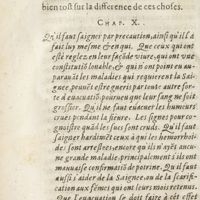 bien tost sur la difference de ces choses.
CHAP. X.
Qu'il faut saigner par precaution, ainsi qu'il a
fait luy mesme & en qui. Que ceux qui ont
esté reglez en leur façõ de vivre, qui ont vne
constitutiõ loüable, & qui n'ont point eu au-
parauãt de maladies qui requierent la Sai-
gnee, peuuẽt estre gueris par tout autre sor-
te d'euacuatiõ, pourueu que leur sang ne soit
grossier. Qu'il ne faut euacuer les humeurs
crues pendant la fieure. Les signes pour co-
gnoistre quãd les sucs sont cruds. Qu'il faut
saigner hardimẽt ceux à qui les hemorrhoï-
des sont arrestees, encor qu'ils n'ayẽt aucu-
ne grande maladie, principalement s'ils ont
mauuaise conformatiõ de poitrine. Qu'il faut
aussi s'aider de la Saignee, ou de la scarifi-
cation aux fẽmes qui ont leurs mois retenus.
Que l'euacuation se doit faire à cét effet